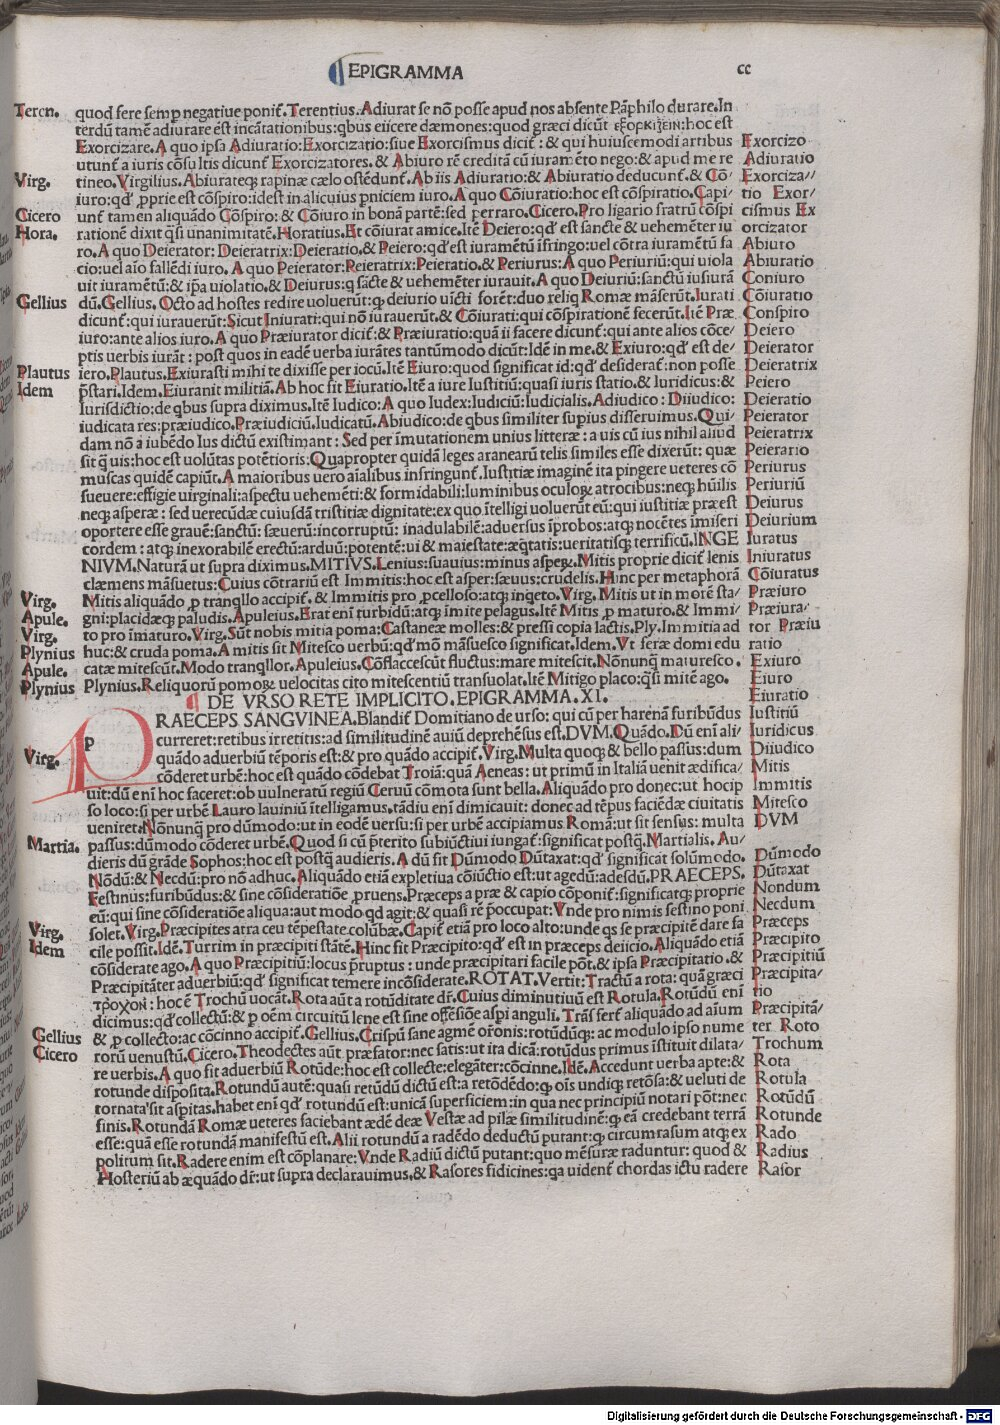 EPIGRAMMA
cc
Teren.
Virg.
Cicero
Hora.
Gellius
Plautus
Idem
Virg.
Apule.
Virg.
Plynius
Apule.
Plynius
Virg.
Martia.
Virg.
Idem
Gellius
Cicero
quod fere semꝑ negatiue ponit᷑. Terentius. Adiurat se nō posse apud nos absente Pāphilo durare. In
terdū tamē adiurare ést incātationibus: qbus eiicere dæmones: quod græci dicūt εξορκιζειν: hoc est
Exorcizare. A quo ipsa Adiuratio: Exorcizatio: siue Exorcismus dicit᷑: & qui huiuscemodi artibus
utunt᷑ a iuris cōsultis dicunt᷑ Exorcizatores. & Abiuro rē creditā cū iuramēto nego: & apud me re
tineo. Virgilius. Abiurateqꝫ rapinæ cælo ostēdunt᷑. Ab iis Adiuratio: & Abiuratio deducunt᷑. & Cō/
iuro: qd' ꝓprie est cōspiro: idest in alicuius pniciem iuro. A quo Cōiuratio: hoc est cōspiratio. Capi/
unt᷑ tamen aliquādo Cōspiro: & Cōiuro in bonā partē: sed perraro. Cicero. Pro ligario fratrū cōspi
rationē dixit q̄si unanimitatē. Horatius. Et cōiurat amice. Itē Deiero: qd' est sancte & uehemēter iu
ro. A quo Deierator: Deieratrix: Deieratio. & Peiero: qd' est iuramētū īfringo: uel cōtra iuramētū fa
cio: uel aīo fallēdi iuro. A quo Peierator: Peieratrix: Peieratio. & Periurus: A quo Periuriū: qui uiola
uit iuramētū: & ip̄a uiolatio. & Deiurus: q sācte & uehemēter iurauit. A quo Deiuriū: sanctū iusiurā
dū. Gellius. Octo ad hostes redire uoluerūt: ꝙ deiurio uīcti forēt: duo reliq Romæ māserūt. Iurati
dicunt᷑: qui iurauerūt: Sicut Iniurati: qui nō iurauerūt. & Cōiurati: qui cōspirationē fecerūt. Itē Præ
iuro: ante alios iuro. A quo Præiurator dicit᷑: & Præiuratio: quā ii facere dicunt᷑: qui ante alios cōce/
ptis uerbis iurāt: post quos in eadē uerba iurātes tantūmodo dicūt: Idē in me. & Exiuro: qd' est de/
iero. Plautus. Exiurasti mihi te dixisse per iocū. Itē Eiuro: quod significat id: qd' desiderat᷑: non posse
p̄stari. Idem. Eiuranit militiā. Ab hoc sit Eiuratio. Itē a iure Iustitiū: quasi iuris statio. & Iuridicus: &
Iurisdictio: de qbus supra diximus. Itē Iudico: A quo Iudex: Iudiciū: Iudicialis. Adiudico: Diiudico:
iudicata res: præiudico. Præiudiciū. Iudicatū. Abiudico: de qbus similiter supius disseruimus. Qui/
dam nō a iubēdo Ius dictū existimant: Sed per īmutationem unius litteræ: a uis cū ius nihil aliud
sit q̄ uis: hoc est uolūtas potētioris: Quapropter quidā leges aranearū telis similes esse dixerūt: quæ
muscas quidē capiūt. A maioribus uero aīalibus infringunt᷑. Iustitiæ imaginē ita pingere ueteres cō
sueuere: effigie uirginali: aspectu uehemēti: & formidabili: luminibus oculoꝝ atrocibus: neqꝫ hūilis
neqꝫ asperæ: sed uerecūdæ cuiusdā tristitiæ dignitate: ex quo ītelligi uoluerūt eū: qui iustitiæ præest
oportere esse grauē: sanctū: sæuerū: incorruptū: inadulabilē: aduersus īprobos: atqꝫ nocētes īmiseri
cordem: atqꝫ inexorabilē erectū: arduū: potentē: ui & maiestate: æq̄tatis: ueritatisqꝫ terrificū. INGE
NIVM. Naturā ut supra diximus. MITIVS. Lenius: suauius: minus aspeꝝ. Mitis proprie dicit᷑ lenis
clæmens māsuetus: Cuius cōtrariū est Immitis: hoc est asper: sæuus: crudelis. Hinc per metaphorā
Mitis aliquādo ꝓ tranqllo accipit᷑. & Immitis pro ꝓcelloso: atqꝫ inqeto. Virg. Mitis ut in morē sta/
gni: placidæqꝫ paludis. Apuleius. Erat enī turbidū: atqꝫ īmite pelagus. Itē Mitis ꝓ maturo. & Immi/
to pro īmaturo. Virg. Sūt nobis mitia poma: Castaneæ molles: & pressi copia lactis. Ply. Immitia ad
huc: & cruda poma. A mitis sit Mitesco uerbū: qd' mō māsuesco significat. Idem. Vt feræ domi edu
catæ mitescūt. Modo tranqllor. Apuleius. Cōflaccescūt fluctus: mare mitescit. Nōnunq̄ maturesco.
Plynius. Reliquorū pomoꝝ uelocitas cito mitescentiū transuolat. Itē Mitigo placo: q̄si mitē ago.
DE VRSO RETE IMPLICITO. EPIGRAMMA. XI.
p
RAECEPS SANGVINEA. Blandit᷑ Domitiano de urso: qui cū per harenā furibūdus
curreret: retibus irretitis: ad similitudinē auiū deprehēsus est. DVM. Quādo. Dū enī ali/
quādo aduerbiū tēporis est: & pro quādo accipit᷑. Virg. Multa quoqꝫ & bello passus: dum
cōderet urbē: hoc est quādo cōdebat Troiā: quā Aeneas: ut primū in Italiā uenit ædifica/
uit: dū enī hoc faceret: ob uulneratū regiū Ceruū cōmota sunt bella. Aliquādo pro donec: ut hocip
so loco: si per urbē Lauro lauiniū ītelligamus. tādiu enī dimicauit: donec ad tēpus faciēdæ ciuitatis
ueniret. Nōnunq̄ pro dūmodo: ut in eodē uersu: si per urbē accipiamus Romā: ut sit sensus: multa
passus: dūmodo cōderet urbē. Quod si cū p̄terito subiūctiui iungat᷑: significat postq̄. Martialis. Au/
dieris dū grāde Sophos: hoc est postq̄ audieris. A dū sit Dūmodo Dūtaxat: qd' significat solūmodo.
Nōdū: & Necdū: pro nō adhuc. Aliquādo etiā expletiua cōiūctio est: ut agedū: adesdū. PRAECEPS.
Festinus: furibūdus: & sine cōsideratiōe ꝓruens. Præceps a præ & capio cōponit᷑: significatqꝫ proprie
eū: qui sine cōsideratiōe aliqua: aut modo qd agit: & quasi rē p̄occupat: Vnde pro nimis festino poni
solet. Virg. Præcipites atra ceu tēpestate colūbæ. Capit᷑ etiā pro loco alto: unde qs se præcipitē dare fa
cile possit. Idē. Turrim in præcipiti stātē. Hinc sit Præcipito: qd' est in præceps deiicio. Aliquādo etiā
cōsiderate ago. A quo Præcipitiū: locus p̄ruptus: unde præcipitari facile pōt. & ipsa Præcipitatio. &
Præcipitāter aduerbiū: qd' significat temere incōsiderate. ROTAT. Vertit: Tractū a rota: quā græci
τροχον: hoc ē Trochū uocāt. Rota aūt a rotūditate dr̄. Cuius diminutiuū est Rotula. Rotūdū enī
dicimus: qd' collectū: & ꝑ oēm circuitū lene est sine offēsiōe aspi anguli. Trāsfert᷑ aliquādo ad aīum
& ꝓ collecto: ac cōcinno accipit᷑. Gellius. Crispū sane agmē or̄onis: rotūdūqꝫ: ac modulo ipso nume
rorū uenustū. Cicero. Theodectes aūt præfator: nec satis: ut ita dicā: rotūdus primus īstituit dilata/
re uerbis. A quo sit aduerbiū Rotūde: hoc est collecte: elegāter: cōcinne. Idē. Accedunt uerba apte: &
rotunde disposita. Rotundū autē: quasi retūdū dictū est: a retōdēdo: ꝙ oīs undiqꝫ retōsa: & ueluti de
tornata'sit aspitas. habet enī qd' rotundū est: unicā superficiem: in qua nec principiū notari pōt: nec
finis. Rotundā Romæ ueteres faciebant ædē deæ Vestæ ad pilæ similitudinē: ꝙ eā credebant terrā
esse: quā esse rotundā manifestū est. Alii rotundū a radēdo deductū putant: ꝙ circumrasum atqꝫ ex
politum sit. Radere enim est cōplanare: Vnde Radiū dictū putant: quo mēsuræ raduntur: quod &
Hosteriū ab æquādo dr̄: ut supra declarauimus. & Rasores fidicines: qa uident᷑ chordas ictu radere
Exorcizo
Adiuratio
Exorciza//
tio Exor/
cismus Ex
orcizator
Abiuro
Abiuratio
Coniuro
Cōiuratio
Conspiro
Deiero
Deierator
Deieratrix
Peiero
Deieratio
Peierator
Peieratrix
Peierario
Periurus
Periuriū
Deiurus
Deiurium
Iuratus
Iniuratus
Cōiuratus
Præiuro
Præiura/
tor Præiu
ratio
Exiuro
Eiuro
Eiuratio
Iustitiū
Iuridicus
Diiudico
Mitis
Immitis
Mitesco
DVM
Dūmodo
Dūtaxat
Nondum
Necdum
Præceps
Præcipito
Præcipitiū
Præcipita/
tio
Præcipitā/
ter Roto
Trochum
Rota
Rotula
Rotūdū
Rotunde
Rado
Radius
Rasor
Digitalisierung gefördert durch die Deutsche Forschungsgemeinschaft - DFG